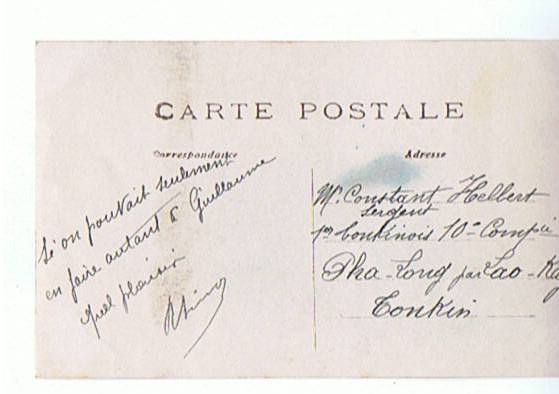 CARTE POSTALE
Correspondance
Adresse
Si on pouvait seulement
en faire autant à Guillaume
quel plaisir
Mr Constant Helbert
Sergent
1er Tonkinois 10e Compie
Pha-Long par Lao-Kay
Tonkin